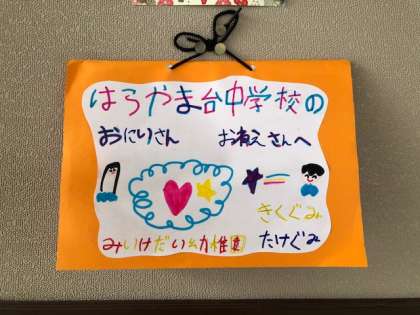 はらやま台中学校の
おにいさん お補えさんへ
きくぐみ
みいけだい幼稚園 たけぐみ